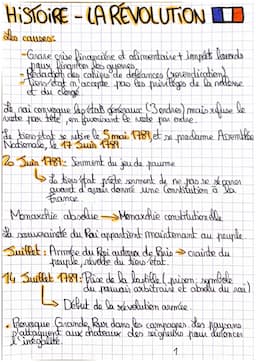 HiSTOiRE - LA RÉVOLUTION
Les causes:
- Grave crise financière et alimentaire + impôts lourds
pour financer les guerres
- Rédaction des cahiers de doléances (revendication)
- Tiers état n'accepte pas les privilèges de la noblesse
et du clergé
Le roi convoque les états généraux (3 ordres) mais refuse le
vote par tête, en favorisant le vote par ordre.
Le tiers état se retire le 5 mai 1789, et se proclame Assemblée
Nationale, le 17 Juin 1789.
20 Juin 1789: Serment du jeu de paume
Le tiers état prête serment de ne pas se séparer
avant d'avoir donné une Constitution à la
France.
Monarchie absolue → Monarchie constitutionnelle
La souveraineté du Roi appartient maintenant au peuple.
Juillet: Armée du Roi autour de Paris → crainte du
peuple, révolte du tiers état.
14 Juillet 1789: Prise de la bastille (prison, symbole
du pouvoir arbitraire et absolu du roi)
Début de la révolution armée.
Presque Grande Peur dans les campagnes des paysans
s'attaquent aux châteaux des seigneurs pour dénoncer
l'inégalité.
1